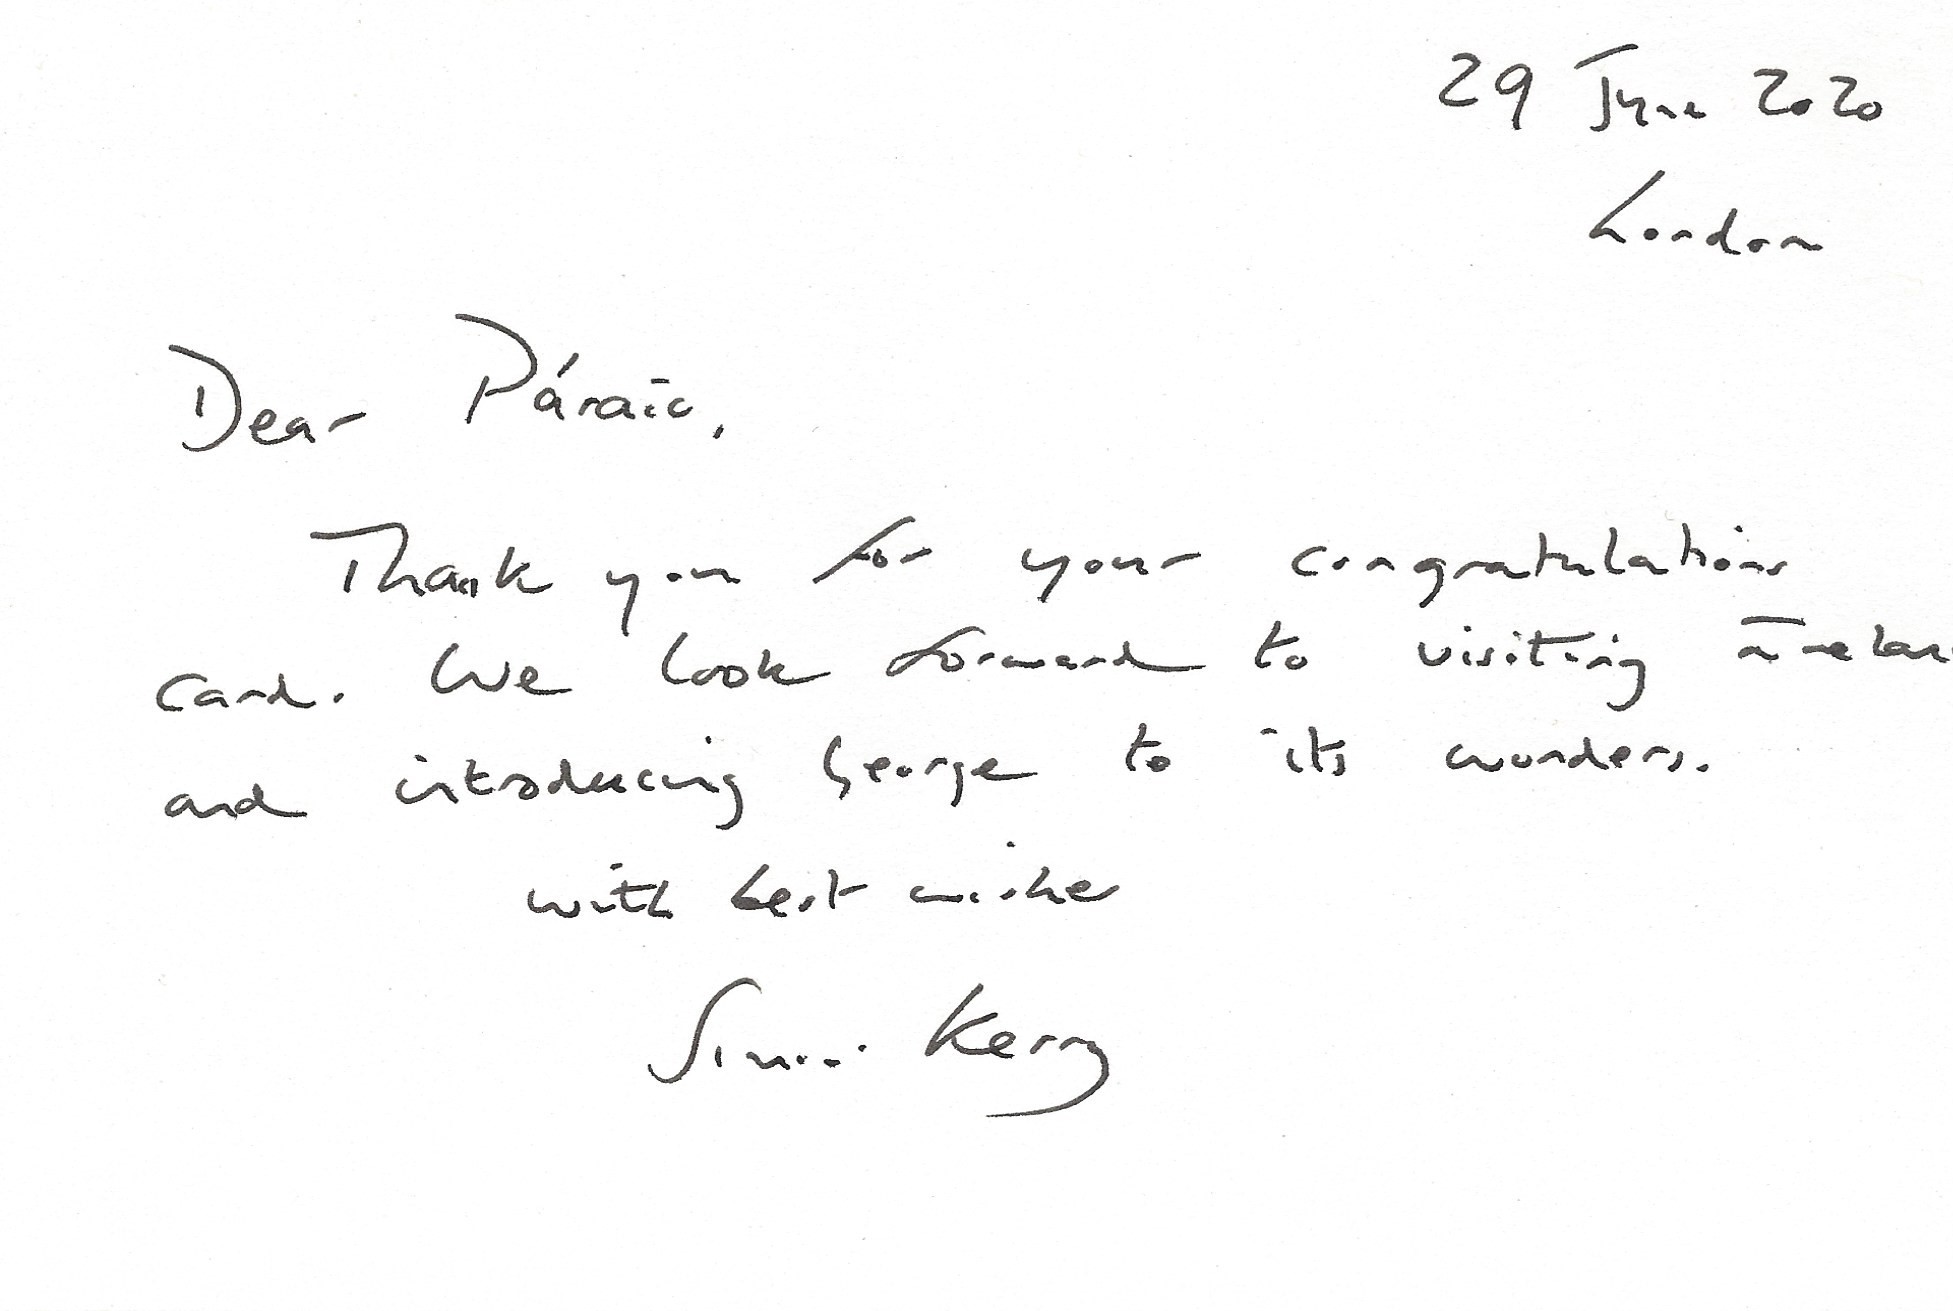 29 June 2020
London
Dear Páraic,
Thank you for your congratulations
card. We look forward to visiting Irelan
and introducing George to its wonders.
with best wishes
Simon Kerry